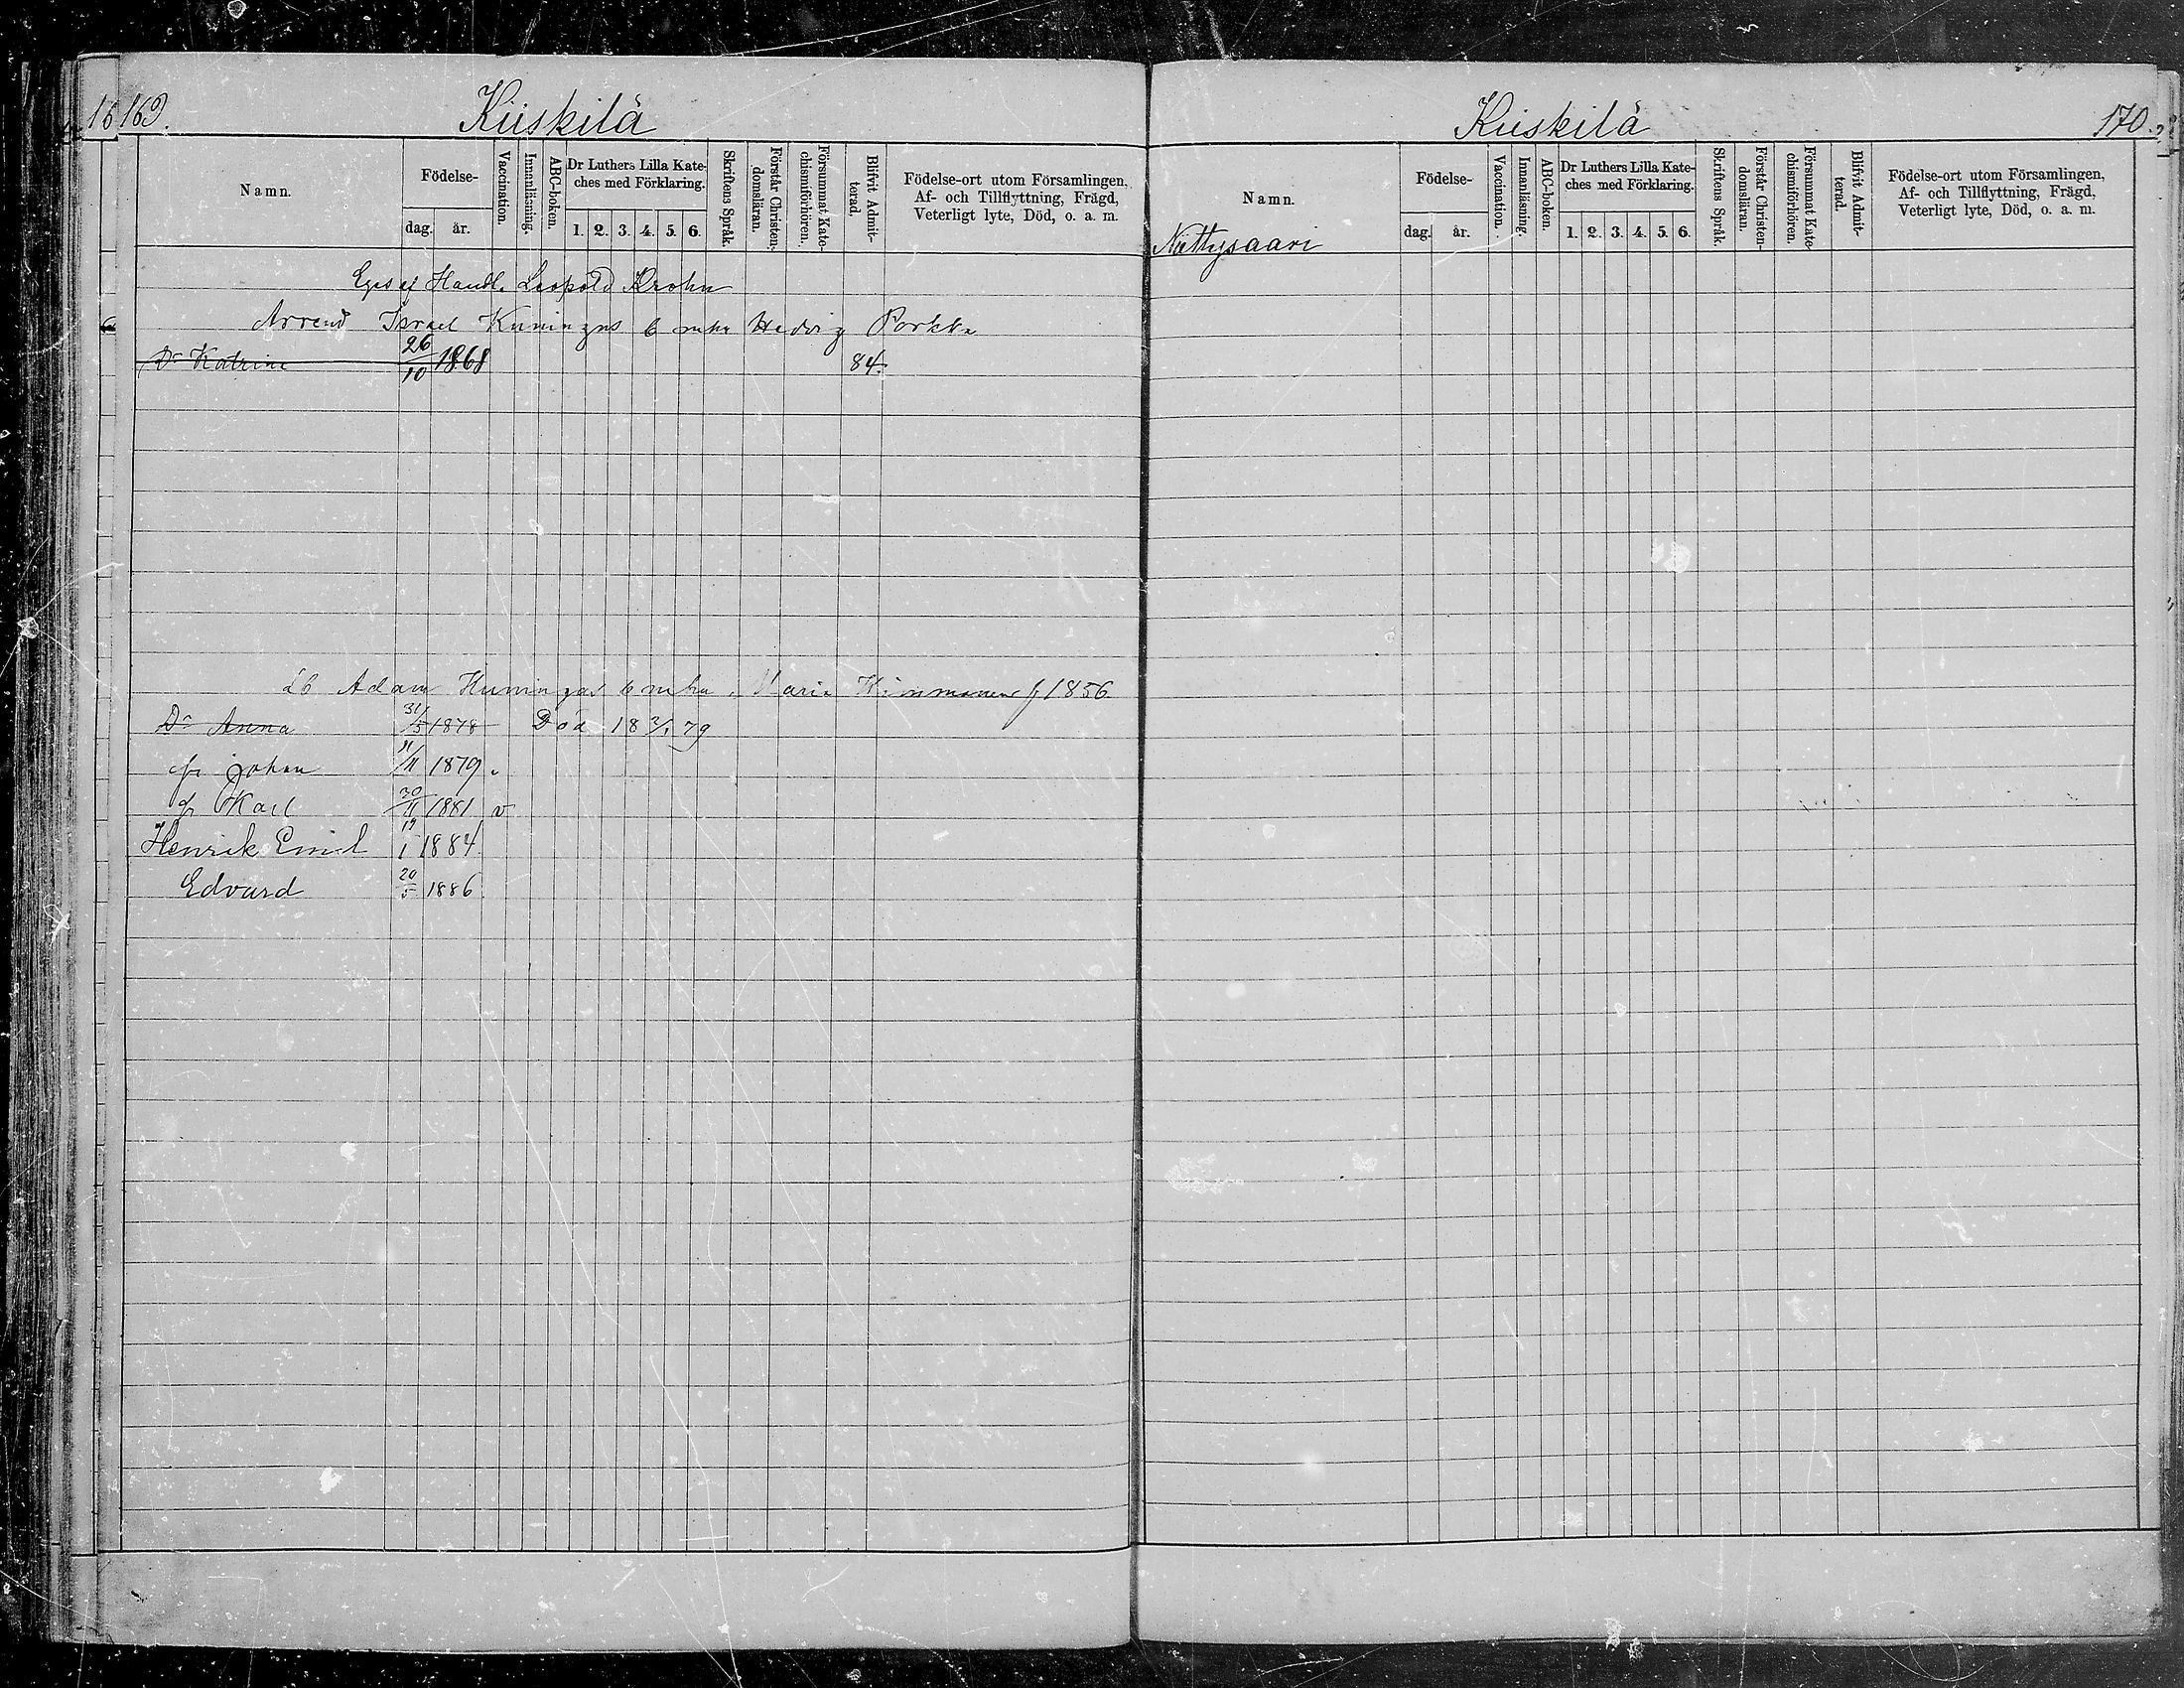 16 169.
Kiiskilä
Namn.
Födelse-
dag. år.
Vaccination.
Innanläsning.
ABC-boken.
Dr Luthers Lilla Kate-
ches med Förklaring.
1. 2. 3. 4. 5. 6.
Skriftens Språk.
Förstår Christen-
domsläran.
Försummat Kate-
chismiförhören.
Blifvit Admit-
terad.
Födelse-ort utom Församlingen,
Af- och Tillflyttning, Frägd,
Veterligt lyte, Död, o. a. m.
Handl. Leopold Krohn
Arrend Israel Kuningas o mha Hedvig Porkka
Dr Katrina 26/10 1868 84.
Adam Kuningas o mha Maria f 1856
Dr Anna 31/5 1878 Död 18 79
Johan 11/11 1879 v
Karl 30/11 1881 v
Henrik Emil 19/1 1884
Edvard 20/5 1886
Kiiskilä
170.
Namn.
Födelse-
dag. år.
Vaccination.
Innanläsning.
ABC-boken.
Dr Luthers Lilla Kate-
ches med Förklaring.
1. 2. 3. 4. 5. 6.
Skriftens Språk.
Förstår Christen-
domsläran.
Försummat Kate-
chismiförhören.
Blifvit Admit-
terad.
Födelse-ort utom Församlingen,
Af- och Tillflyttning, Frägd,
Veterligt lyte, Död, o. a. m.